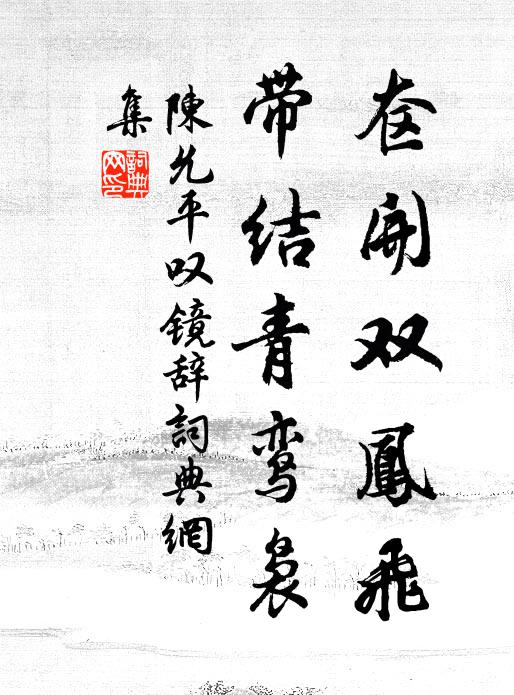 奁開双鳳飛
带结青鸾袅
陳允平叹镜辞詞典網
集
詞典
网印